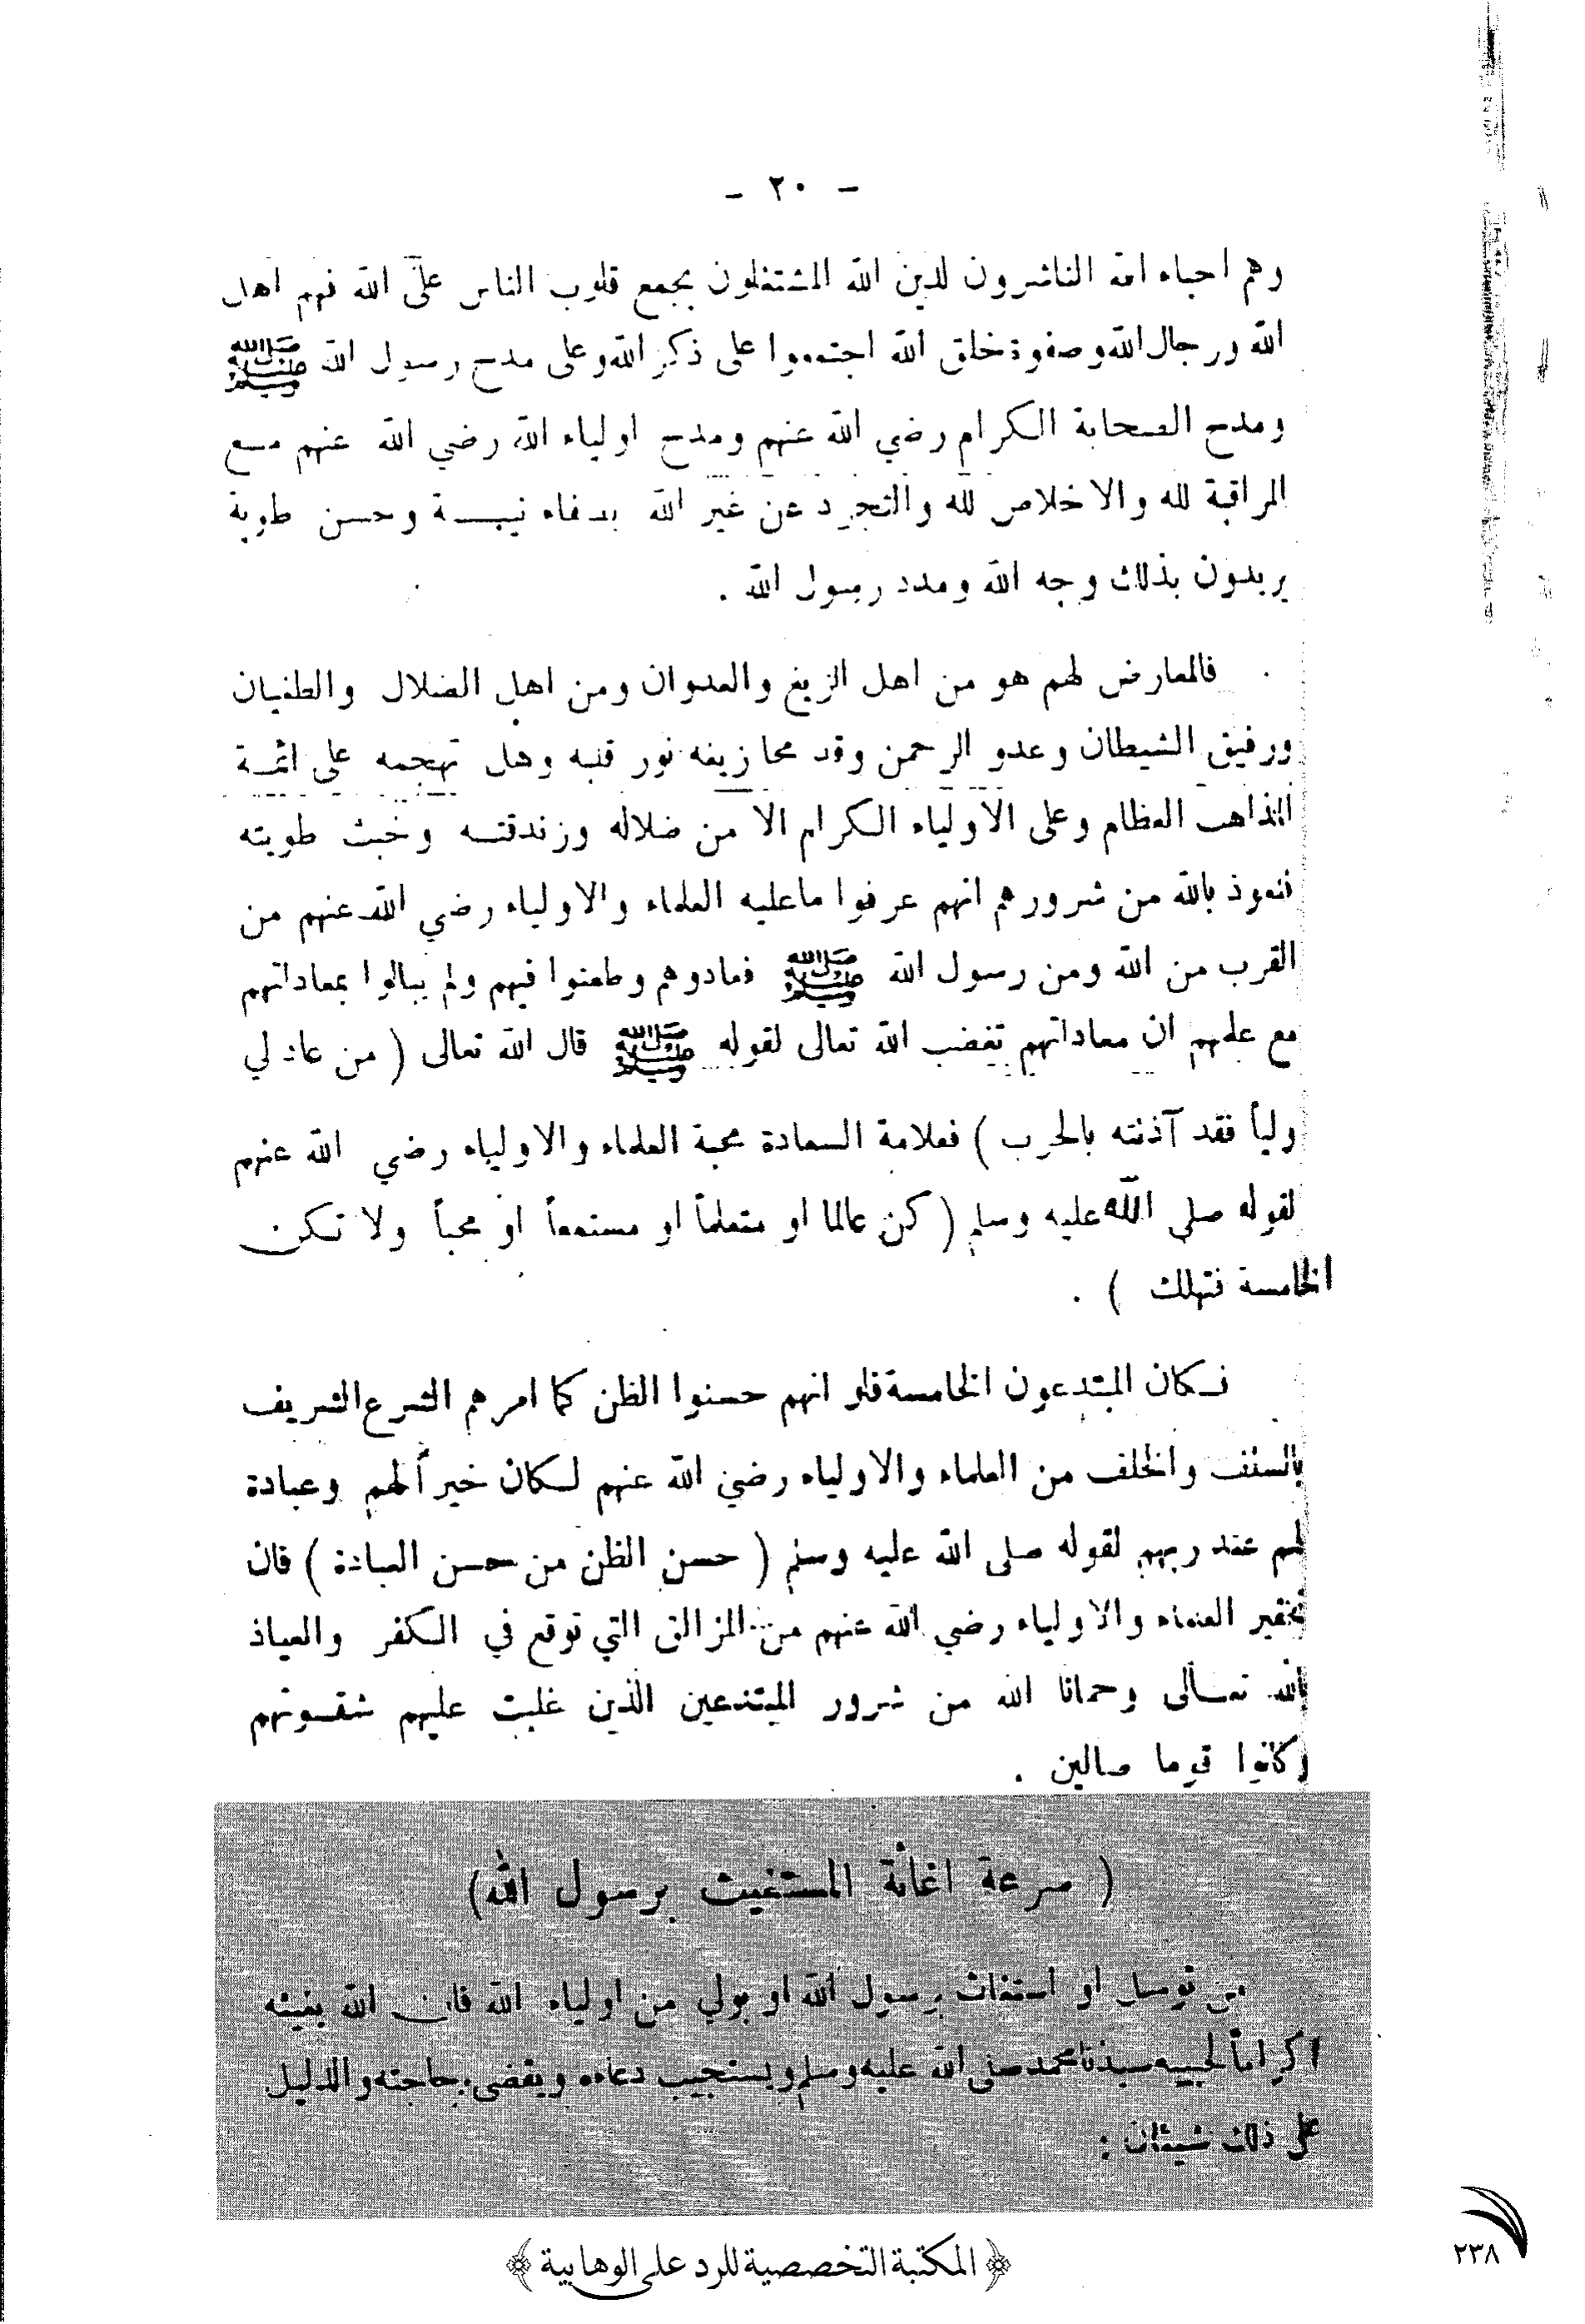 - ٢٠ -
وهم احباء الله الناشرون لدين الله المشتغلون بجمع قلوب الناس على الله فهم اهل
الله ورجال الله وصفوة خلق الله اجتمعوا على ذكر الله وعلى مدح رسول الله ﷺ
ومدح الصحابة الكرام رضي الله عنهم ومدح اولياء الله رضي الله عنهم مع
المراقبة لله والاخلاص لله والتجرد عن غير الله بصفاء نيــة وحسن طوية
يريدون بذلك وجه الله ومدد رسول الله .
فالمعارض لهم هو من اهل الزيغ والعدوان ومن اهل الضلال والطغيان
ورفيق الشيطان وعدو الرحمن وقد محا زيغه نور قلبه وهل تهجمه على ائمــة
المذاهب العظام وعلى الاولياء الكرام الا من ضلاله وزندقتــه وخبث طويته
فنعوذ بالله من شرورهم انهم عرفوا ماعليه العلماء والاولياء رضي الله عنهم من
القرب من الله ومن رسول الله ﷺ فعادوهم وطعنوا فيهم ولم يبالوا بمعاداتهم
مع علمهم ان معاداتهم تغضب الله تعالى لقوله ﷺ قال الله تعالى ( من عاد لي
ولياً فقد آذنته بالحرب ) فعلامة السعادة محبة العلماء والاولياء رضي الله عنهم
لقوله صلى الله عليه وسلم ( كن عالما او متعلماً او مستمعاً او محباً ولا تكن
الخامسة فتهلك ) .
فــكان المبتدعون الخامسة فلو انهم حسنوا الظن كما امرهم الشرع الشريف
بالسلف والخلف من العلماء والاولياء رضي الله عنهم لــكان خيراً لهم وعبادة
لهم عند ربهم لقوله صلى الله عليه وسلم ( حسن الظن من حسن العبادة ) فان
تحقير العلماء والاولياء رضي الله عنهم من المزالق التي توقع في الــكفر والعياذ
بالله تعــالى وحمانا الله من شرور المبتدعين الذين غلبت عليهم شقــوتهم
وكانوا قوما ضالين .
( سرعة اغاثة المستغيث برسول الله)
من توسل او استغاث برسول الله او بولي من اولياء الله فان الله يغيثه
اكراماً لحبيبه سيدنا محمد صلى الله عليه وسلم ويستجيب دعاءه ويقضي حاجته والدليل
على ذلك شيئان :
﴿ المكتبة التخصصية للرد على الوهابية ﴾
٢٣٨